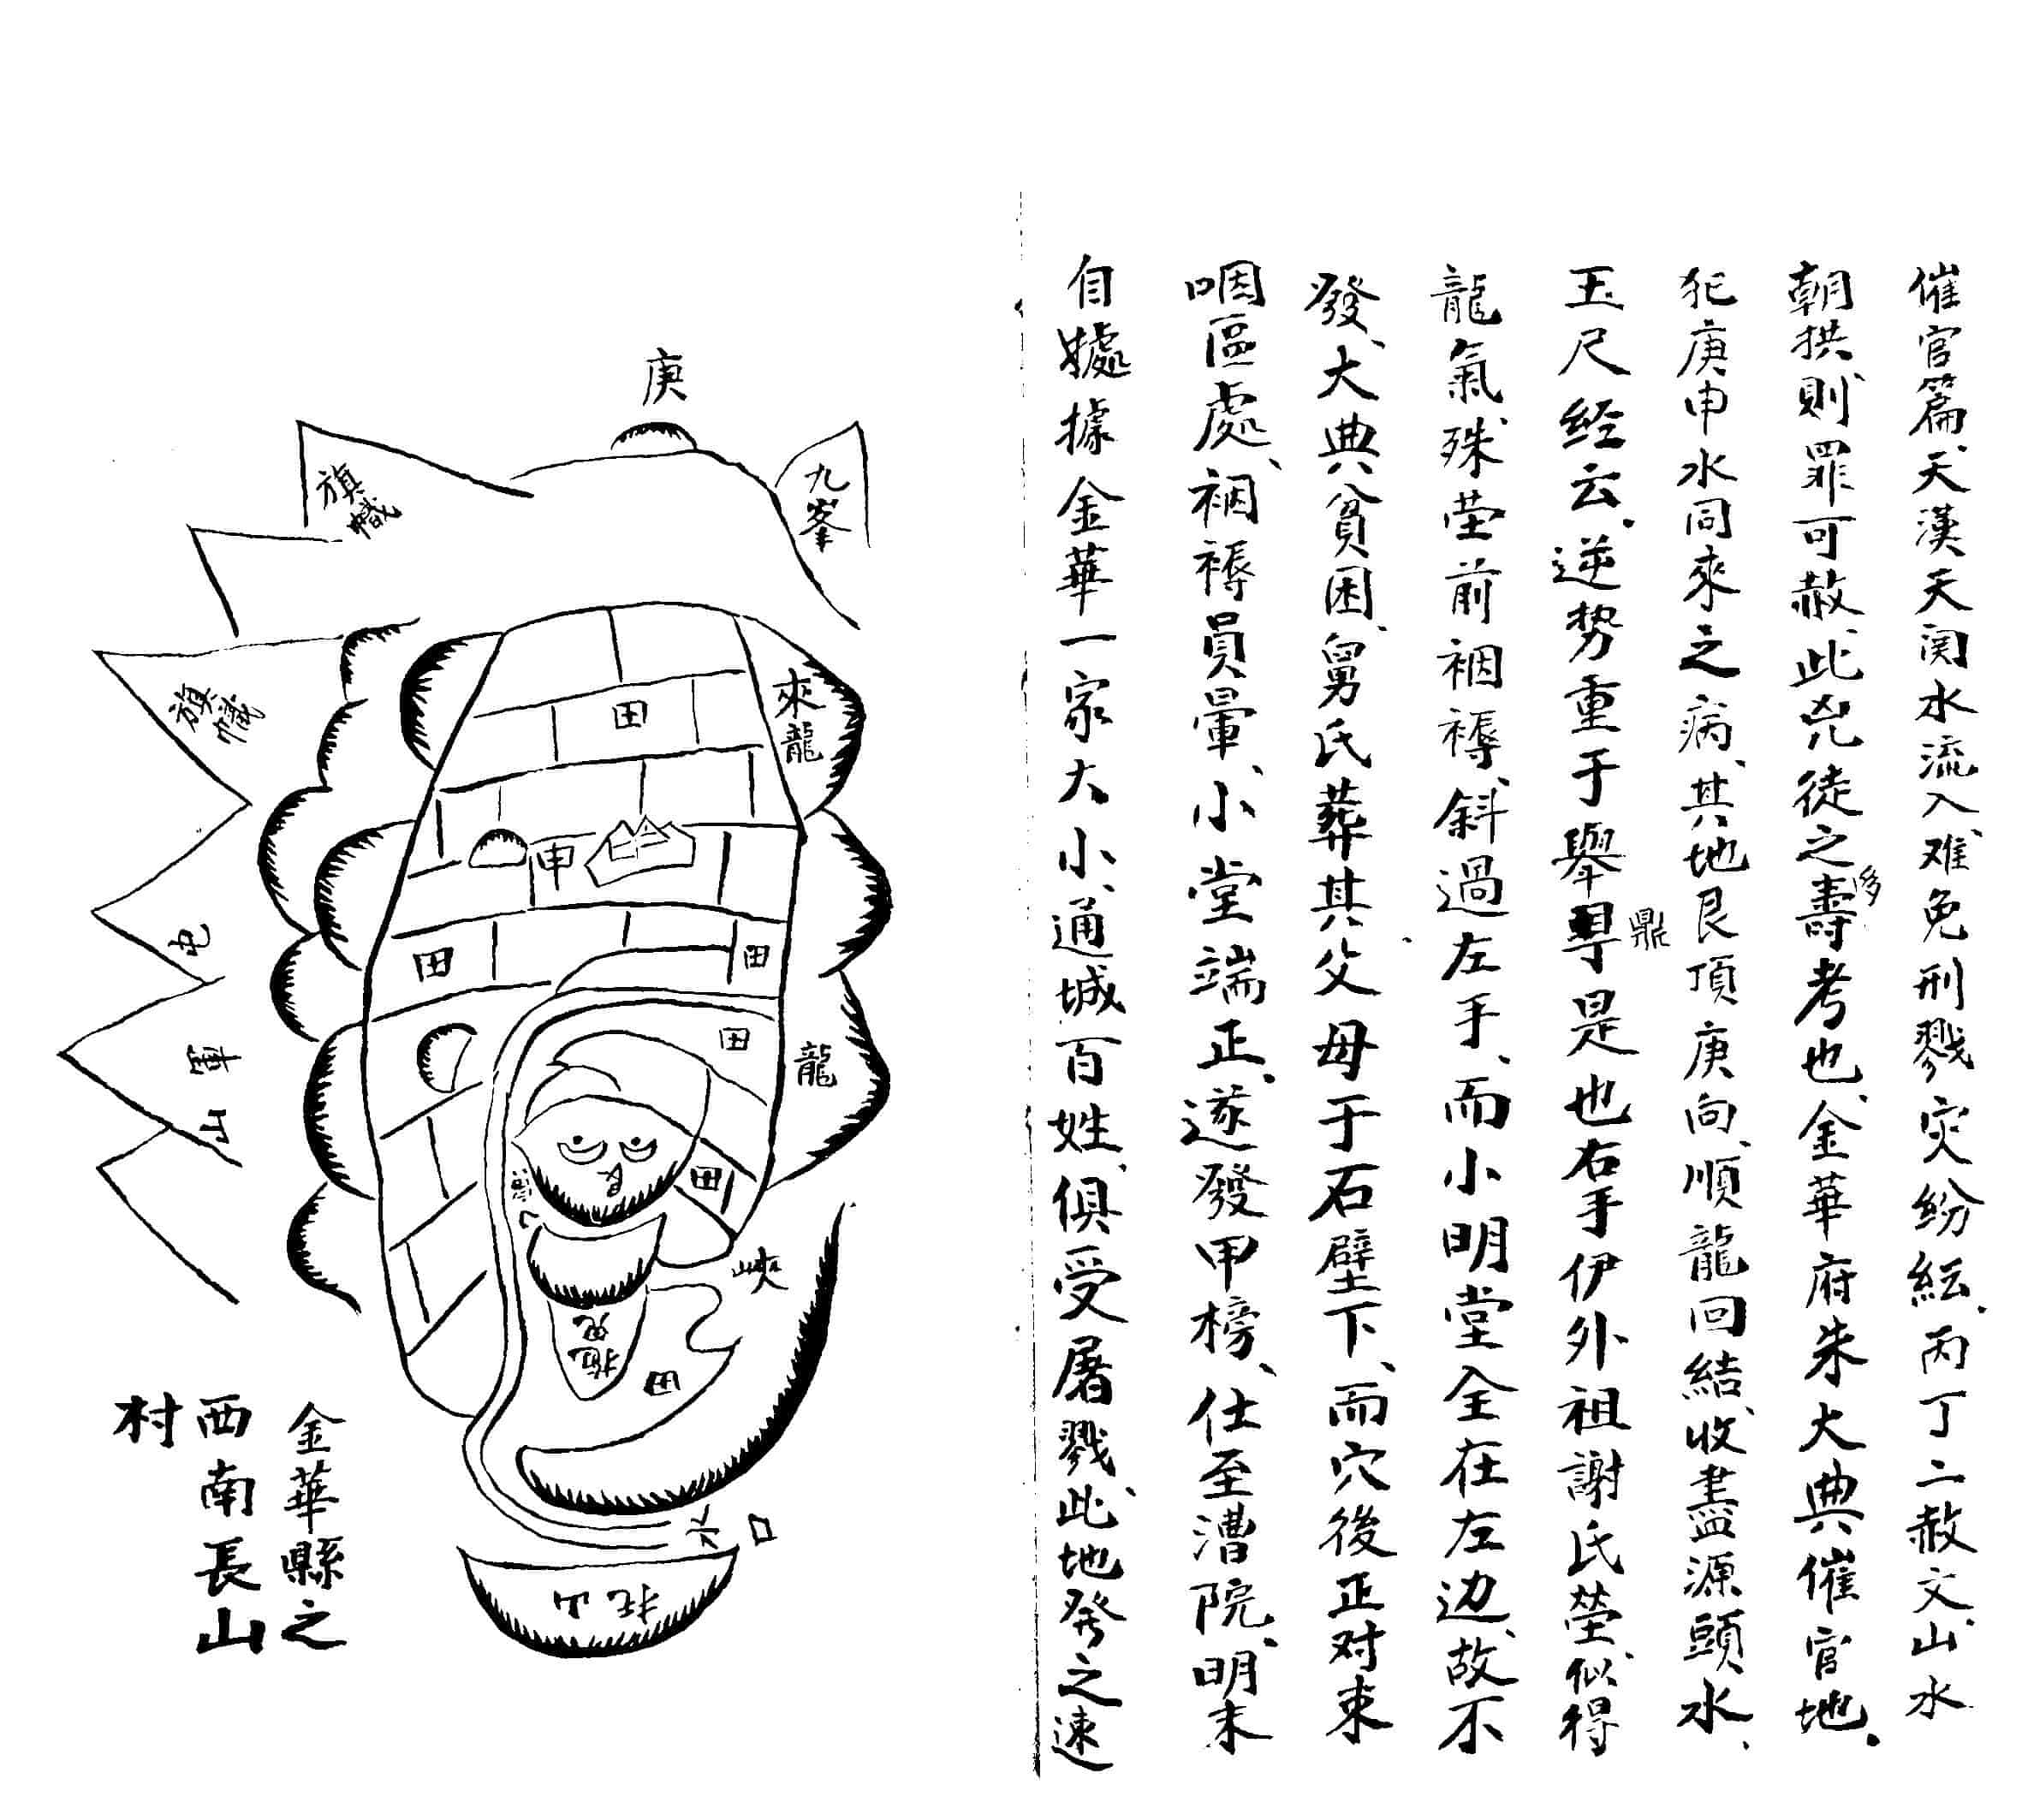 催官篇、天漢天関水流入、难免刑戮灾紛紜、丙丁二赦文、山水
朝拱、則罪可赦、此兇徒之多壽考也、金華府朱大典催官地。
犯庚申水同來之病、其地艮頂庚向、順龍回結、收盡源頭水、
玉尺经云、逆势重于舉鼎是也右手伊外祖謝氏塋、似得
龍氣、殊塋前裀褥、斜過左手、而小明堂全在左边、故不
發、大典貧困、舅氏葬其父母于石壁下、而穴後正对束
咽區處、裀褥員暈、小堂端正、遂發甲榜、仕至漕院、明末
自據金華一家大小、通城百姓、俱受屠戮、此地発之速
庚
九峯
旗幟
旗幟
來龍
田
申
田
田
屯軍山
田
龍
艮
田
峽
田
水口
托山
金華縣之
西南長山
村